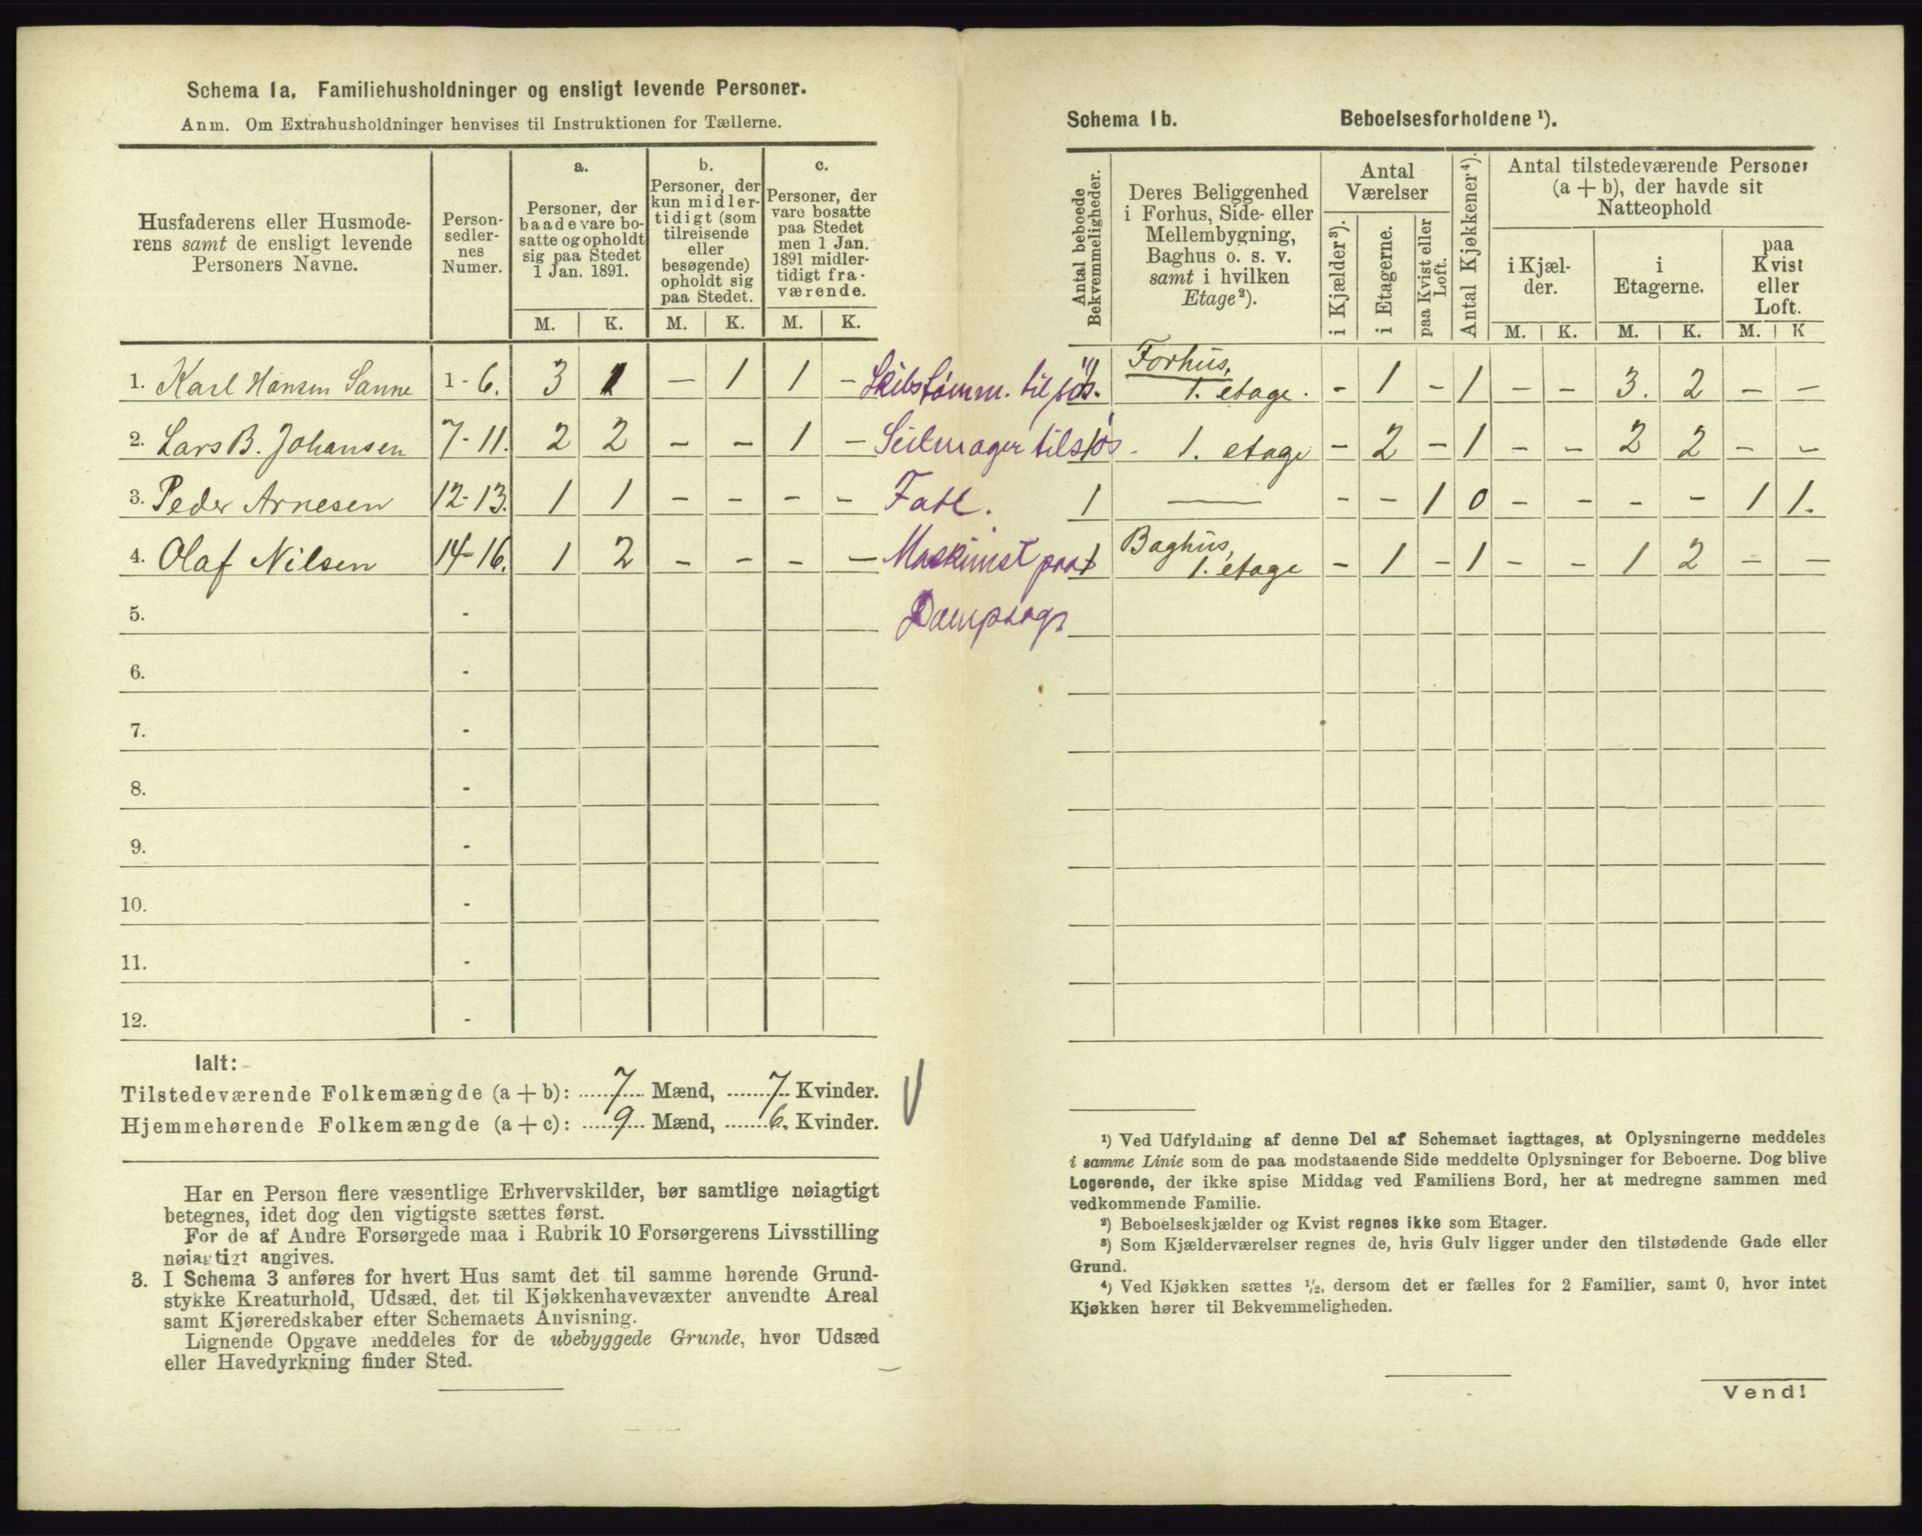 Schema 1a. Familiehusholdninger og ensligt levende Personer.
Anm. Om Extrahusholdninger henvises til Instruktionen for Tællerne.
Husfaderens eller Husmode-
rens samt de ensligt levende
Personers Navne.
Person-
sedler-
nes
Numer.
a.
Personer, der
baade vare bo-
satte og opholdt
sig paa Stedet
1 Jan. 1891.
b.
Personer, der
kun midler-
tidigt (som
tilreisende
eller
besøgende)
opholdt sig
paa Stedet.
c.
Personer, der
vare bosatte
paa Stedet
men 1 Jan.
1891 midler-
tidigt fra-
værende.
M. K. M. K. M. K.
1. Karl Hansen Sanne 1-6. 3 1 - 1 1 - Skibstømm. tilsøs.
2. Lars B. Johansen 7-11. 2 2 - - 1 - Seilmager tilsøs
3. Peder Arnesen 12-13. 1 1 - - - - Fatt.
4. Olaf Nilsen 14-16. 1 2 - - - - Maskinist paa
Dampsag
5. -
6. -
7. -
8. -
9. -
10. -
11. -
12. -
Ialt:
Tilstedeværende Folkemængde (a + b): 7 Mænd, 7 Kvinder.
Hjemmehørende Folkemængde (a + c): 9 Mænd, 6. Kvinder.
Har en Person flere væsentlige Erhvervskilder, bør samtlige nøiagtigt
betegnes, idet dog den vigtigste sættes først.
For de af Andre Forsørgede maa i Rubrik 10 Forsørgerens Livsstilling
nøiagtigt angives.
3. I Schema 3 anføres for hvert Hus samt det til samme hørende Grund-
stykke Kreaturhold, Udsæd, det til Kjøkkenhavevæxter anvendte Areal
samt Kjøreredskaber efter Schemaets Anvisning.
Lignende Opgave meddeles for de ubebyggede Grunde, hvor Udsæd
eller Havedyrkning finder Sted.
Schema 1b. Beboelsesforholdene ¹).
Antal beboede
Bekvemmeligheder.
Deres Beliggenhed
i Forhus, Side- eller
Mellembygning,
Baghus o. s. v.
samt i hvilken
Etage²).
Antal
Værelser
i Kjælder³).
i Etagerne.
paa Kvist eller
Loft.
Antal Kjøkkener⁴).
Antal tilstedeværende Personer
(a + b), der havde sit
Natteophold
i Kjæl-
der.
i
Etagerne.
paa
Kvist
eller
Loft.
M. K. M. K. M. K
Forhus,
1 1. etage. - 1 - 1 - - 3. 2 - -
1 1. etage - 2 - 1 - - 2 2 - -
1 — - - 1 0 - - - - 1 1.
Baghus,
1 1. etage - 1 - 1 - - 1 2 - -
¹) Ved Udfyldning af denne Del af Schemaet iagttages, at Oplysningerne meddeles
i samme Linie som de paa modstaaende Side meddelte Oplysninger for Beboerne. Dog blive
Logerende, der ikke spise Middag ved Familiens Bord, her at medregne sammen med
vedkommende Familie.
²) Beboelseskjælder og Kvist regnes ikke som Etager.
³) Som Kjælderværelser regnes de, hvis Gulv ligger under den tilstødende Gade eller
Grund.
⁴) Ved Kjøkken sættes ½, dersom det er fælles for 2 Familier, samt 0, hvor intet
Kjøkken hører til Bekvemmeligheden.
Vend!